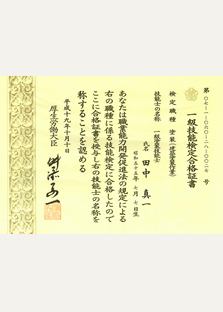 第〇七-一-〇六〇-二八-〇〇二七号
一級技能検定合格証書
検定職種 塗装(建築塗装作業)
技能士の名称 一級塗装技能士
氏名 田中 真一
昭和五十五年 七月 七日生
あなたは職業能力開発促進法の規定による
右の職種に係る技能検定に合格したので
ここに合格証書を授与し右の技能士の名称を
称することを認める
平成十九年十月十日
厚生労働大臣